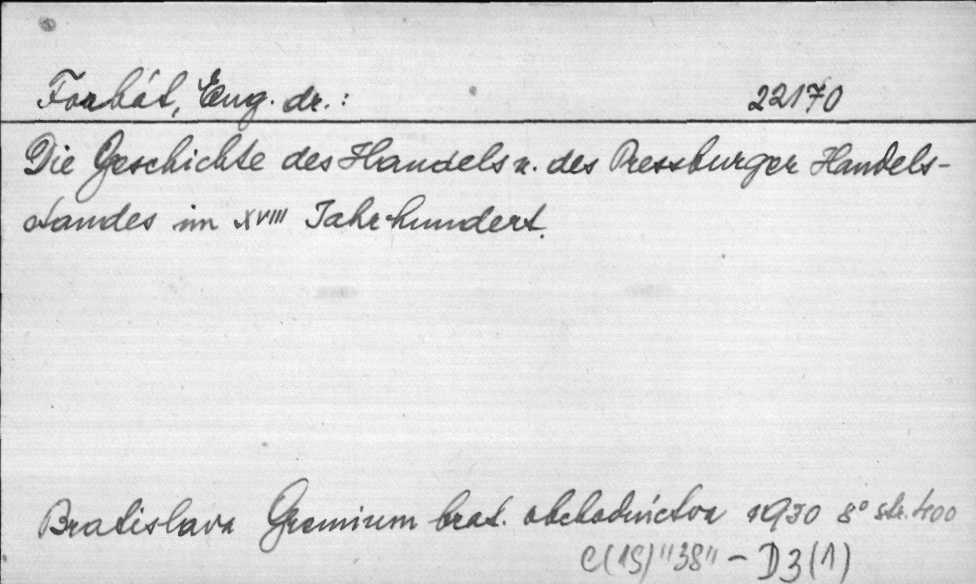 Forbát, Eug. dr.: 22170
Die Geschichte des Handels u. des Pressburger Handels-
standes im XVIII Jahrhundert.
Bratislava Gremium brat. obchodníctva 1930 8° str. 400
C(1S)"38" - D3(1)